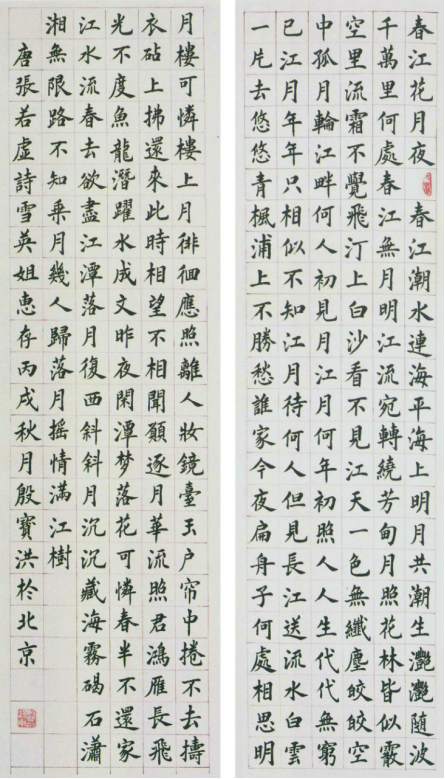 春江花月夜春江潮水連海平海上明月共潮生灩灩隨波
千萬里何處春江無月明江流宛轉繞芳甸月照花林皆似霰
空里流霜不覺飛汀上白沙看不見江天一色無纖塵皎皎空
中孤月輪江畔何人初見月江月何年初照人人生代代無窮
已江月年年只相似不知江月待何人但見長江送流水白雲
一片去悠悠青楓浦上不勝愁誰家今夜扁舟子何處相思明
月樓可憐樓上月徘徊應照離人妝鏡臺玉户帘中捲不去擣
衣砧上拂還來此時相望不相聞願逐月華流照君鴻雁長飛
光不度魚龍潛躍水成文昨夜閑潭梦落花可憐春半不還家
江水流春去欲盡江潭落月復西斜斜月沉沉藏海霧碣石瀟
湘無限路不知乘月幾人歸落月摇情滿江樹
唐張若虛詩雪英姐惠存丙戌秋月殷寶洪於北京